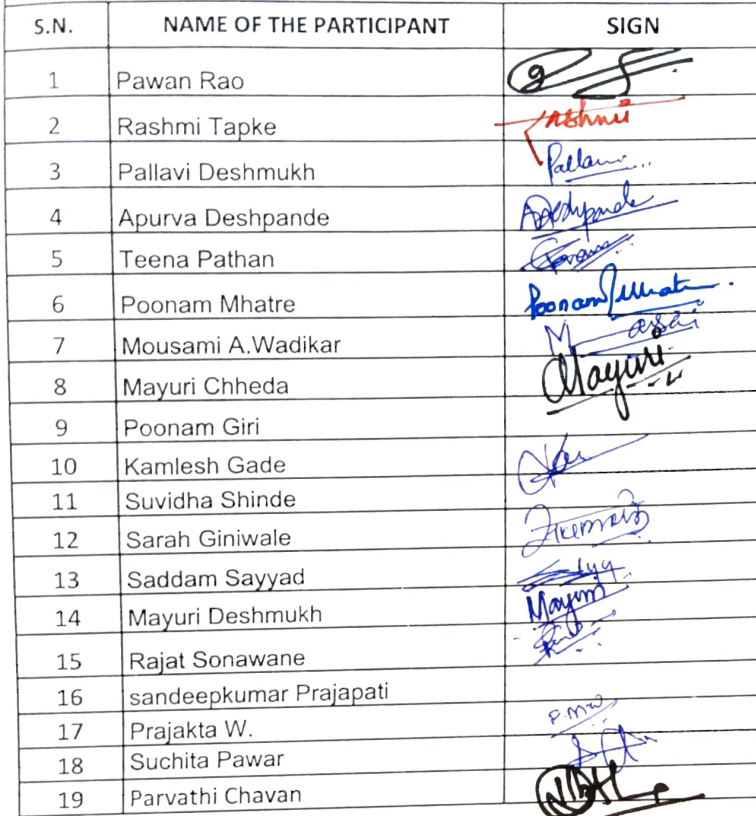 S.N. NAME OF THE PARTICIPANT SIGN
1 Pawan Rao
2 Rashmi Tapke
3 Pallavi Deshmukh
4 Apurva Deshpande ADeshpande
5 Teena Pathan
6 Poonam Mhatre Poonam
7 Mousami A.Wadikar
8 Mayuri Chheda Mayuri
9 Poonam Giri
10 Kamlesh Gade
11 Suvidha Shinde
12 Sarah Giniwale
13 Saddam Sayyad
14 Mayuri Deshmukh Mayuri
15 Rajat Sonawane
16 sandeepkumar Prajapati
17 Prajakta W.
18 Suchita Pawar
19 Parvathi Chavan